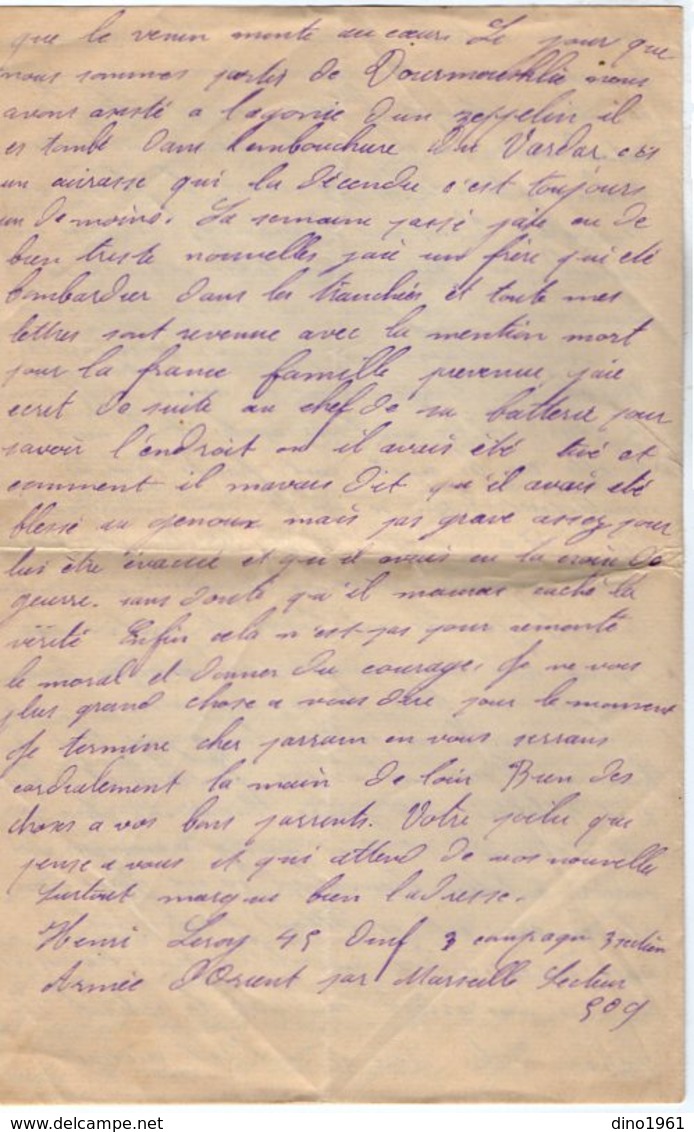 que le venin monte au cœur. Le jour que
nous sommes partis de Dourmouchlie nous
avons asisté a l'agonie d'un zeppelin il
es tombé dans l'embouchure du Vardar c'es
un cuirasse qui la décendu c'est toujours
un de moins. La semaine passé jaie eu de
bien triste nouvelles jaie un frère qui été
bombardier dans les tranchées et toute mes
lettres sont revenue avec la mention mort
pour la france famille prevenue, jaie
ecrit de suite au chef de sa batterie pour
savoir l'endroit ou il avais été tué et
comment il mavais dit qu'il avais été
blessé au genoux mais pas grave assez pour
lui être évacué et qu'il avais eu la croix de
geurre. sans doute qu'il mauras caché la
vérité Enfin cela n'est-pas pour remonté
le moral et donner du courage, Je ne vois
plus grand chose a vous dire pour le moment
Je termine cher parrain en vous serrans
cordialement la main de loin Bien des
choses a vos bons parrents. Votre poilu que
pense a vous et qui attend de vos nouvelles
surtout marque bien l'adresse.
Henri Leroy 45 d'inf 3 compagni 3 section
Armée d'Orient par Marseille Secteur
509
dino1961